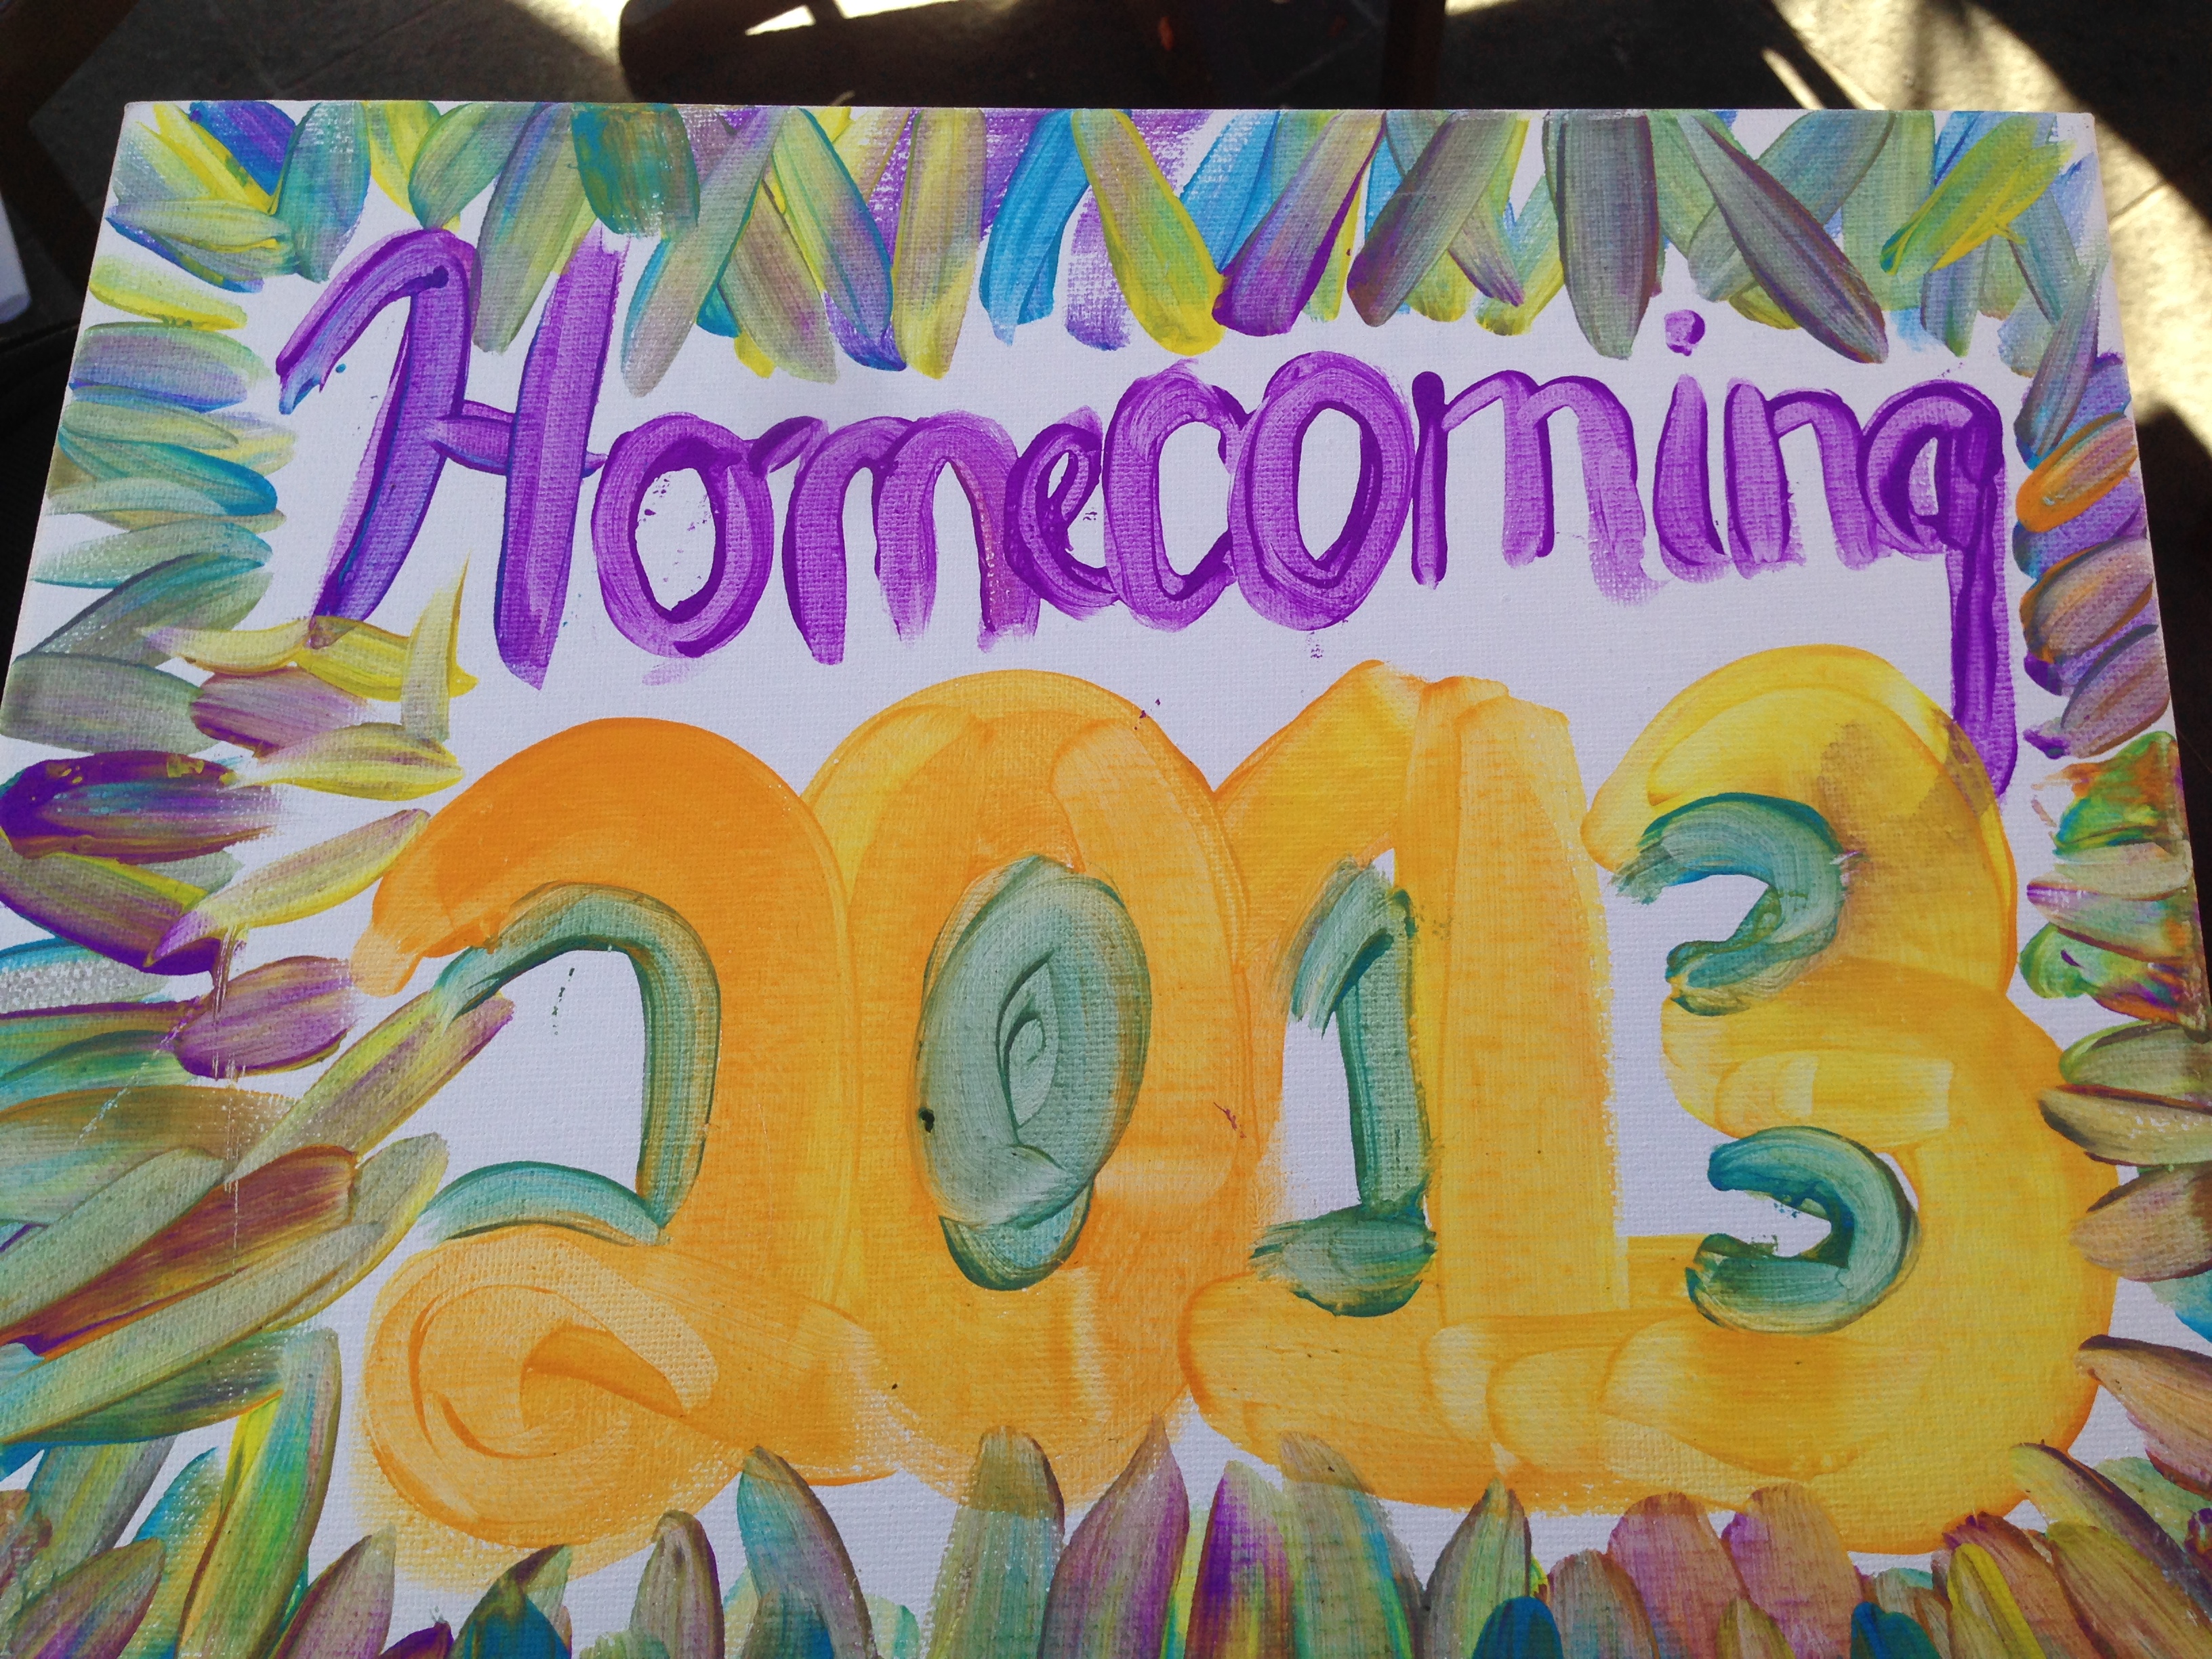 Homecoming
2013